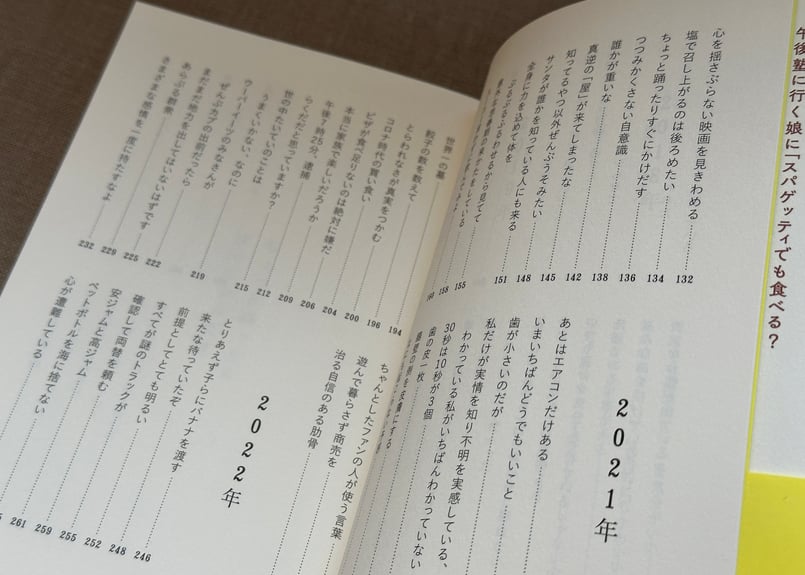 午後塾に行く娘に「スパゲッティでも食べる?
心を揺さぶらない映画を見きわめる 132
塩で召し上がるのは後ろめたい 134
ちょっと踊ったりすぐにかけだす 136
つつみかくさない自意識 138
誰かが重いな 142
真逆の「屋」が来てしまったな 145
知ってるやつ以外ぜんぶうそみたい 148
サンタが誰かを知っている人にも来る 151
全身に力を込めて体を
ぶるぶるふるわせるから見てて 155
158
160
2021年
あとはエアコンだけある
いまいちばんどうでもいいこと
歯が小さいのだが
私だけが実情を知り不明を実感している、
わかっている私がいちばんわかっていない
30秒は10秒が3個
歯の皮一枚
世界一の墓
餃子の数を数えて
とらわれなさが真実をつかむ 194
コロナ時代の買い食い 196
ピザが食べ足りないのは絶対に嫌だ 200
本当に家族で楽しいだろうか 204
午後7時25分、逮捕 206
らくだだと思っていますか? 209
世の中たいていのことは
うまくいかない、なのに 212
ウーバーイーツのみなさんが 215
ぜんぶカブの出前だったら 219
まだまだ地力を出してはいないはずです 222
あらぶる群衆 225
さまざまな感情を一度に持たすなよ 229
232
ちゃんとしたファンの人が使う言葉
遊んで暮らさず商売を
治る自信のある肋骨
2022年
とりあえず子らにバナナを渡す 246
来たな待っていたぞ 248
前提としてとても明るい 252
すべてが謎のトラックが 255
確認して両替を頼む 259
安ジャムと高ジャム 261
ペットボトルを海に捨てない
心が遭難している